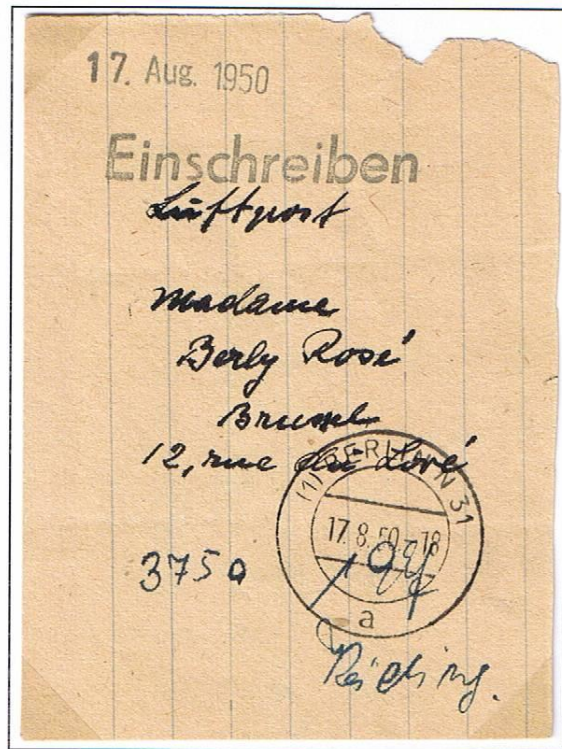 17. Aug. 1950
Einschreiben
Luftpost
Madame
Berly Rosé
Brussel
12, rue du Lové
(1) BERLIN N 31
17.8.50 -18
a
375a